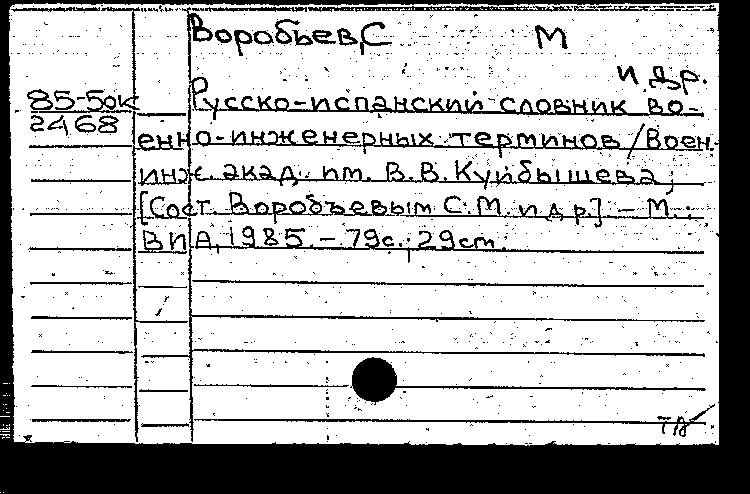 Воробьев, С М
и др.
85-5ок Русско-испанский словник во-
2468
енно-инженерных терминов /Воен.
инж. акад. им. В.В.Куйбышева;
[Сост. Воробъевым С.М. и др.] – М.:
ВИА, 1985. – 79с.; 29см.